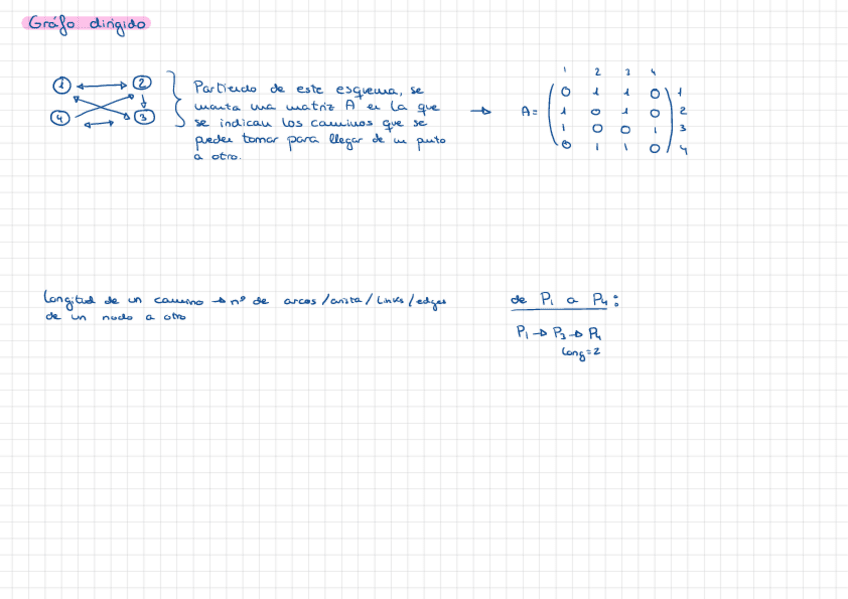 Gráfo dirigido
1 2
4 3
Partiendo de este esquema, se
monta una matriz A en la que
se indican los caminos que se
pueden tomar para llegar de un punto
a otro.
1 2 3 4
A= 0 1 1 0 1
1 0 1 0 2
1 0 0 1 3
0 1 1 0 4
Longitud de un camino → nº de arcos/arista/links/edges
de un nodo a otro
de P1 a P4:
P1 → P3 → P4
Long=2